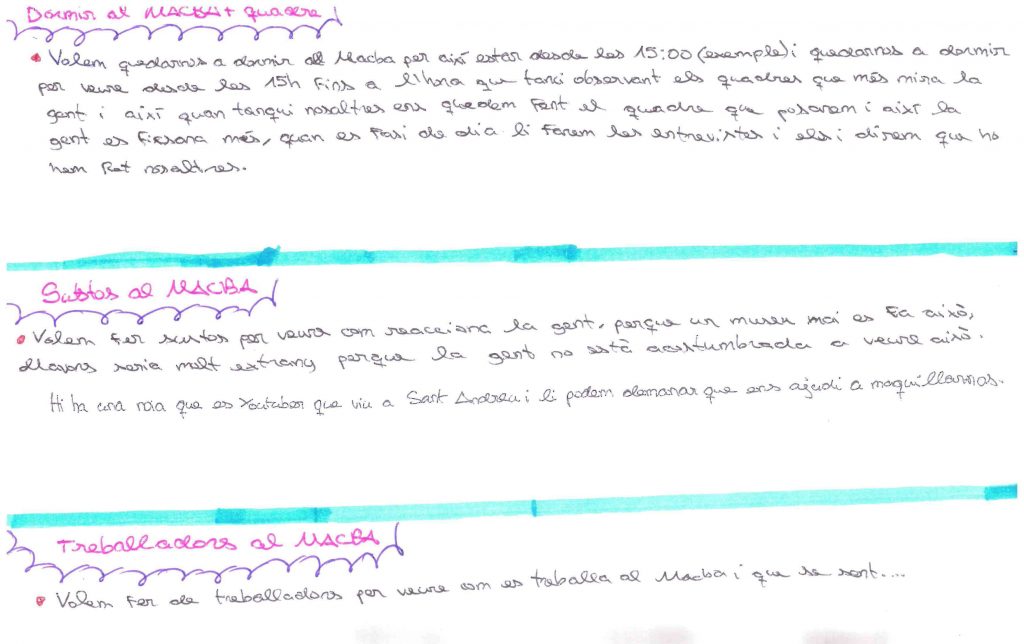 Dormir al MACBA + quadre
• Volem quedarnos a dormir al Macba per així estar desde les 15:00 (exemple) i quedarnos a dormir
per veure desde les 15h fins a l'hora que tanci observant els quadres que més mira la
gent i així quan tanqui nosaltres ens quedem fent el quadre que posarem i així la
gent es fixsara més, quan es fasi de dia li farem les entrevistes i els i direm que ho
hem fet nosaltres.
Sustos al MACBA
• Volem fer sustos per veure com reacciona la gent, perque un museu mai es fa això,
llavors seria molt extrany perque la gent no està acostumbrada a veure això.
Hi ha una noia que es Youtuber que viu a Sant Andreu i li podem demanar que ens ajudi a maquillarnos.
Treballadors al MACBA
• Volem fer de treballadors per veure com es treballa al Macba i que se sent....